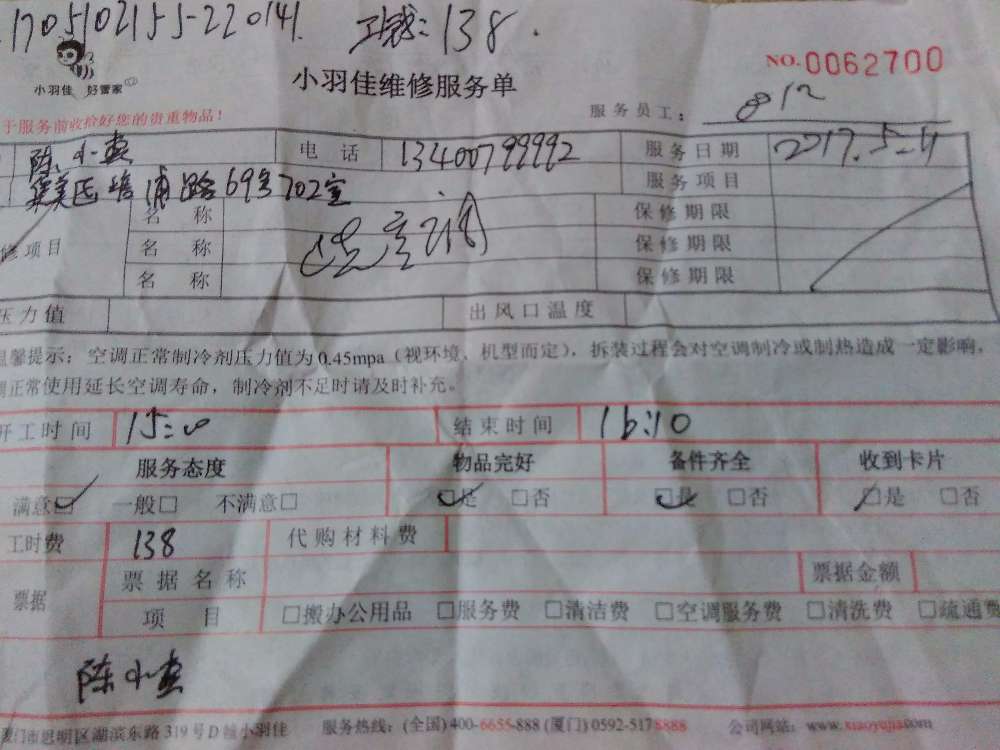 1705102155-220141 工钱:138.
小羽佳 好管家
小羽佳维修服务单
NO.0062700
于服务前收捡好您的贵重物品!
服务员工: 812
陈小燕 电话 13400799992 服务日期 2017.5-11
集美区 浦路69号702室 服务项目
名称 保修期限
修项目 名称 保修期限
名称 保修期限
压力值 出风口温度
温馨提示:空调正常制冷剂压力值为0.45mpa(视环境、机型而定),拆装过程会对空调制冷或制热造成一定影响,
调正常使用延长空调寿命,制冷剂不足时请及时补充。
开工时间 15:00 结束时间 16:10
服务态度 物品完好 备件齐全 收到卡片
满意☑ 一般□ 不满意□ ☑是 □否 ☑是 □否 ☑是 □否
工时费 138 代购材料费
票据 票据名称 票据金额
项目 □搬办公用品 □服务费 □清洁费 □空调服务费 □清洗费 □疏通费
陈小燕
厦门市思明区湖滨东路319号D幢小羽佳 服务热线:(全国)400-6655-888 (厦门)0592-5178888 公司网站:www.xiaoyujia.com